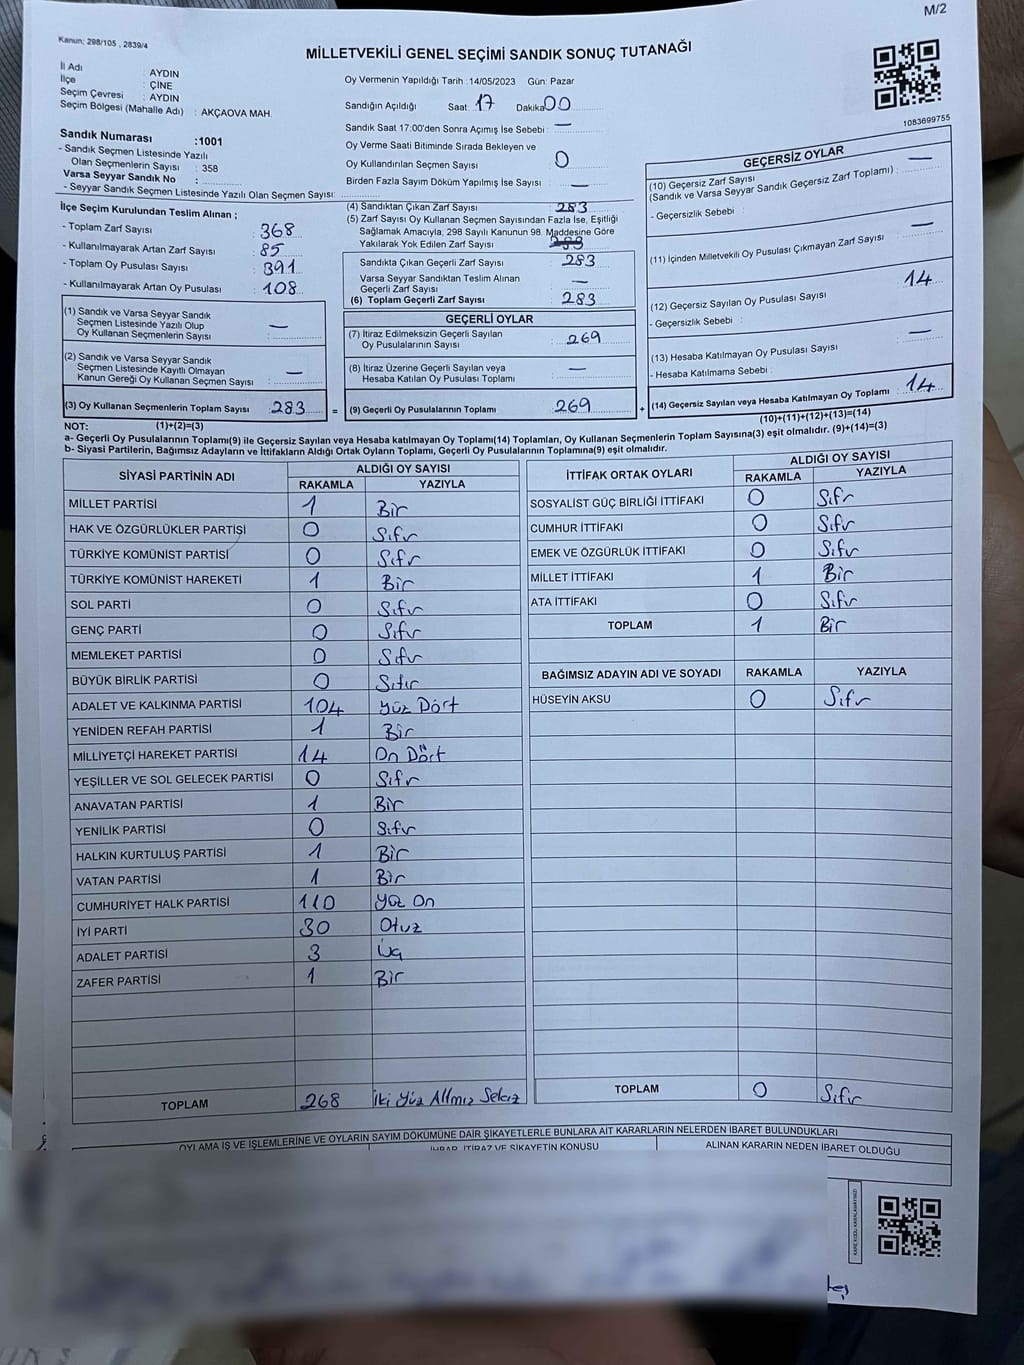 M/2
Kanun: 298/105 , 2839/4
MİLLETVEKİLİ GENEL SEÇİMİ SANDIK SONUÇ TUTANAĞI
1083699755
İl Adı : AYDIN
İlçe : ÇİNE
Seçim Çevresi : AYDIN
Seçim Bölgesi (Mahalle Adı) : AKÇAOVA MAH.
Sandık Numarası :1001
- Sandık Seçmen Listesinde Yazılı
Olan Seçmenlerin Sayısı : 358
Varsa Seyyar Sandık No :
- Seyyar Sandık Seçmen Listesinde Yazılı Olan Seçmen Sayısı:
İlçe Seçim Kurulundan Teslim Alınan ;
- Toplam Zarf Sayısı : 368
- Kullanılmayarak Artan Zarf Sayısı : 85
- Toplam Oy Pusulası Sayısı : 391
- Kullanılmayarak Artan Oy Pusulası : 108
(1) Sandık ve Varsa Seyyar Sandık
Seçmen Listesinde Yazılı Olup
Oy Kullanan Seçmenlerin Sayısı : —
(2) Sandık ve Varsa Seyyar Sandık
Seçmen Listesinde Kayıtlı Olmayan
Kanun Gereği Oy Kullanan Seçmen Sayısı : —
(3) Oy Kullanan Seçmenlerin Toplam Sayısı : 283 =
Oy Vermenin Yapıldığı Tarih :14/05/2023 Gün: Pazar
Sandığın Açıldığı Saat 17 Dakika 00
Sandık Saat 17:00'den Sonra Açımış İse Sebebi : —
Oy Verme Saati Bitiminde Sırada Bekleyen ve
Oy Kullandırılan Seçmen Sayısı : 0
Birden Fazla Sayım Döküm Yapılmış İse Sayısı : —
(4) Sandıktan Çıkan Zarf Sayısı : 283
(5) Zarf Sayısı Oy Kullanan Seçmen Sayısından Fazla İse, Eşitliği
Sağlamak Amacıyla; 298 Sayılı Kanunun 98. Maddesine Göre
Yakılarak Yok Edilen Zarf Sayısı
Sandıkta Çıkan Geçerli Zarf Sayısı : 283
Varsa Seyyar Sandıktan Teslim Alınan
Geçerli Zarf Sayısı : —
(6) Toplam Geçerli Zarf Sayısı : 283
GEÇERLİ OYLAR
(7) İtiraz Edilmeksizin Geçerli Sayılan
Oy Pusulalarının Sayısı : 269
(8) İtiraz Üzerine Geçerli Sayılan veya
Hesaba Katılan Oy Pusulası Toplamı : —
(9) Geçerli Oy Pusulalarının Toplamı : 269 +
GEÇERSİZ OYLAR
(10) Geçersiz Zarf Sayısı : —
(Sandık ve Varsa Seyyar Sandık Geçersiz Zarf Toplamı) :
- Geçersizlik Sebebi :
(11) İçinden Milletvekili Oy Pusulası Çıkmayan Zarf Sayısı : —
(12) Geçersiz Sayılan Oy Pusulası Sayısı : 14
- Geçersizlik Sebebi :
(13) Hesaba Katılmayan Oy Pusulası Sayısı : —
- Hesaba Katılmama Sebebi :
(14) Geçersiz Sayılan veya Hesaba Katılmayan Oy Toplamı : 14
NOT: (1)+(2)=(3) (10)+(11)+(12)+(13)=(14)
a- Geçerli Oy Pusulalarının Toplamı(9) ile Geçersiz Sayılan veya Hesaba katılmayan Oy Toplamı(14) Toplamları, Oy Kullanan Seçmenlerin Toplam Sayısına(3) eşit olmalıdır. (9)+(14)=(3)
b- Siyasi Partilerin, Bağımsız Adayların ve İttifakların Aldığı Ortak Oyların Toplamı, Geçerli Oy Pusulalarının Toplamına(9) eşit olmalıdır.
SİYASİ PARTİNİN ADI ALDIĞI OY SAYISI
RAKAMLA YAZIYLA
MİLLET PARTİSİ 1 Bir
HAK VE ÖZGÜRLÜKLER PARTİSİ 0 Sıfır
TÜRKİYE KOMÜNİST PARTİSİ 0 Sıfır
TÜRKİYE KOMÜNİST HAREKETİ 1 Bir
SOL PARTİ 0 Sıfır
GENÇ PARTİ 0 Sıfır
MEMLEKET PARTİSİ 0 Sıfır
BÜYÜK BİRLİK PARTİSİ 0 Sıfır
ADALET VE KALKINMA PARTİSİ 104 Yüz Dört
YENİDEN REFAH PARTİSİ 1 Bir
MİLLİYETÇİ HAREKET PARTİSİ 14 On Dört
YEŞİLLER VE SOL GELECEK PARTİSİ 0 Sıfır
ANAVATAN PARTİSİ 1 Bir
YENİLİK PARTİSİ 0 Sıfır
HALKIN KURTULUŞ PARTİSİ 1 Bir
VATAN PARTİSİ 1 Bir
CUMHURİYET HALK PARTİSİ 110 Yüz On
İYİ PARTİ 30 Otuz
ADALET PARTİSİ 3 Üç
ZAFER PARTİSİ 1 Bir
TOPLAM 268 İki Yüz Altmış Sekiz
İTTİFAK ORTAK OYLARI ALDIĞI OY SAYISI
RAKAMLA YAZIYLA
SOSYALİST GÜÇ BİRLİĞİ İTTİFAKI 0 Sıfır
CUMHUR İTTİFAKI 0 Sıfır
EMEK VE ÖZGÜRLÜK İTTİFAKI 0 Sıfır
MİLLET İTTİFAKI 1 Bir
ATA İTTİFAKI 0 Sıfır
TOPLAM 1 Bir
BAĞIMSIZ ADAYIN ADI VE SOYADI RAKAMLA YAZIYLA
HÜSEYİN AKSU 0 Sıfır
TOPLAM 0 Sıfır
OYLAMA İŞ VE İŞLEMLERİNE VE OYLARIN SAYIM DÖKÜMÜNE DAİR ŞİKAYETLERLE BUNLARA AİT KARARLARIN NELERDEN İBARET BULUNDUKLARI
İHBAR, İTİRAZ VE ŞİKAYETİN KONUSU ALINAN KARARIN NEDEN İBARET OLDUĞU